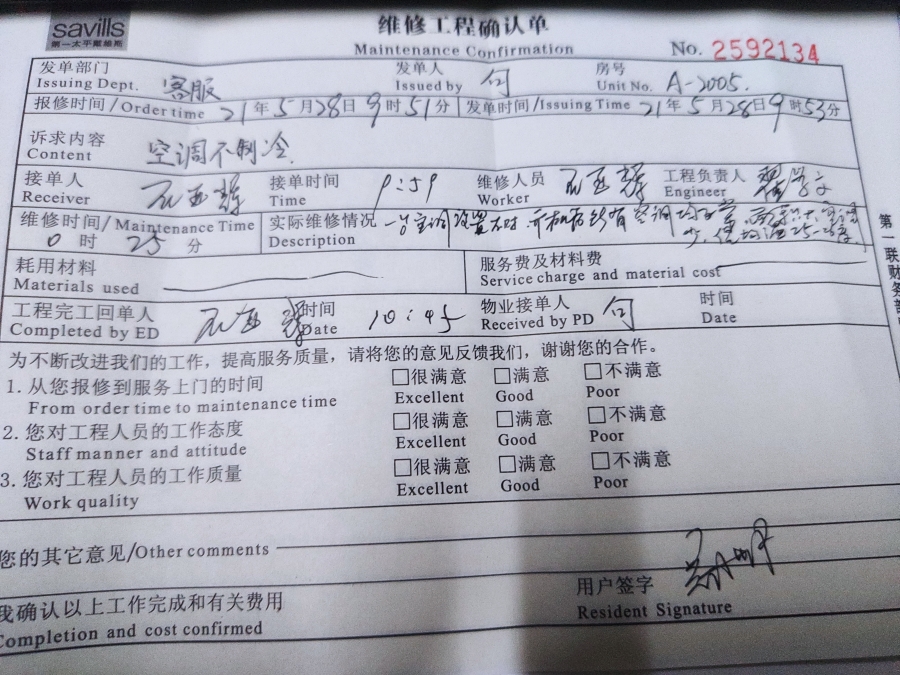 savills
第一太平戴维斯
维修工程确认单
Maintenance Confirmation
No. 2592134
发单部门 客服 发单人 句 房号 A-2005.
Issuing Dept. Issued by Unit No.
报修时间/Order time 21年5月28日9时51分 发单时间/Issuing Time 21年5月28日9时53分
诉求内容 空调不制冷.
Content
接单人 接单时间 9:59 维修人员 工程负责人
Receiver Time Worker Engineer
维修时间/Maintenance Time 实际维修情况 一台空调设置不对
0时25分 Description
耗用材料 服务费及材料费
Materials used Service charge and material cost
工程完工回单人 时间 10:45 物业接单人 句 时间
Completed by ED Date Received by PD Date
为不断改进我们的工作，提高服务质量，请将您的意见反馈我们，谢谢您的合作。
1. 从您报修到服务上门的时间 □很满意 □满意 □不满意
From order time to maintenance time Excellent Good Poor
2. 您对工程人员的工作态度 □很满意 □满意 □不满意
Staff manner and attitude Excellent Good Poor
3. 您对工程人员的工作质量 □很满意 □满意 □不满意
Work quality Excellent Good Poor
您的其它意见/Other comments
我确认以上工作完成和有关费用 用户签字
Completion and cost confirmed Resident Signature
第一联财务部